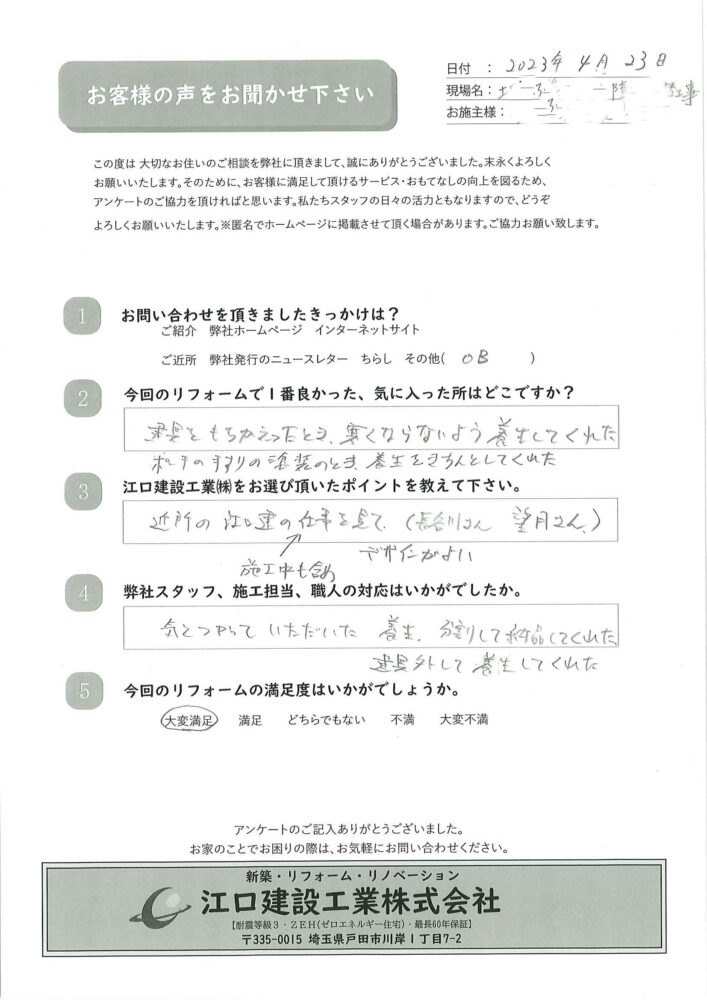 お客様の声をお聞かせ下さい
日付 : 2023年 4月 23日
現場名: 工事
お施主様:
この度は 大切なお住いのご相談を弊社に頂きまして、誠にありがとうございました。末永くよろしく
お願いいたします。そのために、お客様に満足して頂けるサービス・おもてなしの向上を図るため、
アンケートのご協力を頂ければと思います。私たちスタッフの日々の活力ともなりますので、どうぞ
よろしくお願いいたします。※匿名でホームページに掲載させて頂く場合があります。ご協力お願い致します。
1 お問い合わせを頂きましたきっかけは?
ご紹介 弊社ホームページ インターネットサイト
ご近所 弊社発行のニュースレター ちらし その他( OB )
2 今回のリフォームで1番良かった、気に入った所はどこですか?
建具をもちかえったとき、寒くならないよう養生してくれた
ポーチの手すりの塗装のとき、養生をきちんとしてくれた
3 江口建設工業㈱をお選び頂いたポイントを教えて下さい。
近所の江口建の仕事を見て、(長谷川さん 望月さん、)
施工中も含め デザインがよい
4 弊社スタッフ、施工担当、職人の対応はいかがでしたか。
気をつかって いただいた 養生、分割して納品してくれた
建具外して養生してくれた
5 今回のリフォームの満足度はいかがでしょうか。
大変満足 満足 どちらでもない 不満 大変不満
アンケートのご記入ありがとうございました。
お家のことでお困りの際は、お気軽にお問い合わせください。
新築・リフォーム・リノベーション
江口建設工業株式会社
【耐震等級3・ZEH(ゼロエネルギー住宅)・最長60年保証】
〒335-0015 埼玉県戸田市川岸1丁目7-2